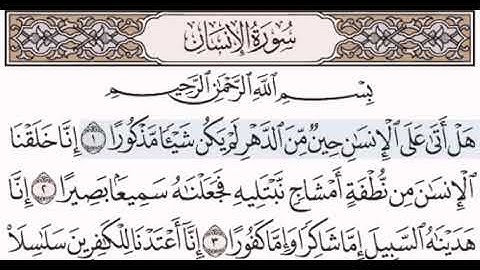 سُورَةُ الإِنسَانِ
بِسْمِ اللَّهِ الرَّحْمَٰنِ الرَّحِيمِ
هَلْ أَتَىٰ عَلَى ٱلْإِنسَٰنِ حِينٌ مِّنَ ٱلدَّهْرِ لَمْ يَكُن شَيْـًٔا مَّذْكُورًا ١ إِنَّا خَلَقْنَا
ٱلْإِنسَٰنَ مِن نُّطْفَةٍ أَمْشَاجٍ نَّبْتَلِيهِ فَجَعَلْنَٰهُ سَمِيعًۢا بَصِيرًا ٢ إِنَّا
هَدَيْنَٰهُ ٱلسَّبِيلَ إِمَّا شَاكِرًا وَإِمَّا كَفُورًا ٣ إِنَّآ أَعْتَدْنَا لِلْكَٰفِرِينَ سَلَٰسِلَا۟